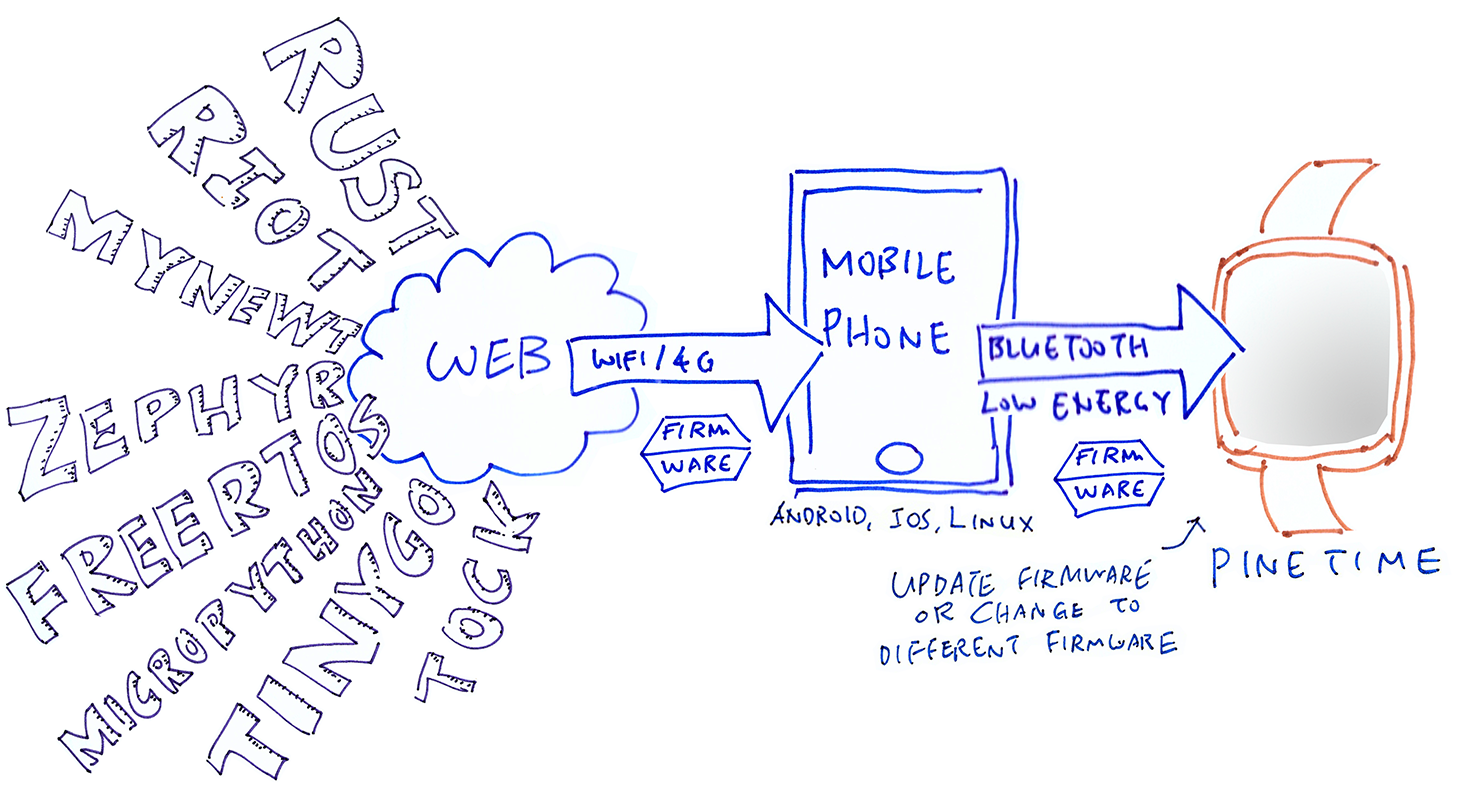 RUST
RIOT
MYNEWT
ZEPHYR
FREERTOS
MICROPYTHON
TINYGO
TOCK
WEB
WIFI/4G
FIRM
WARE
MOBILE
PHONE
ANDROID, IOS, LINUX
BLUETOOTH
LOW ENERGY
FIRM
WARE
UPDATE FIRMWARE
OR CHANGE TO
DIFFERENT FIRMWARE
PINETIME